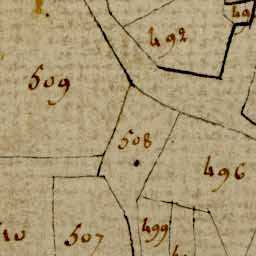 492
509
508
496
507
499